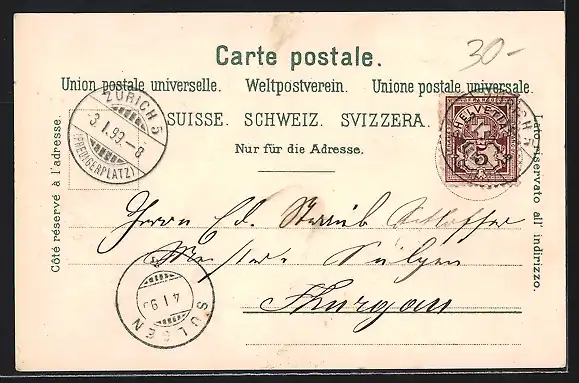 30-
Carte postale.
Union postale universelle. Weltpostverein. Unione postale universale.
SUISSE. SCHWEIZ. SVIZZERA.
Nur für die Adresse.
Côté réservé à l'adresse.
Lato riservato all' indirizzo.
ZÜRICH 5
3.I.99.-8
(PREDIGERPLATZ)
HELVETIA
5
Herrn Ed. Straub Schlosser
Meister. Sulgen
Thurgau
4 I 9
SULGEN